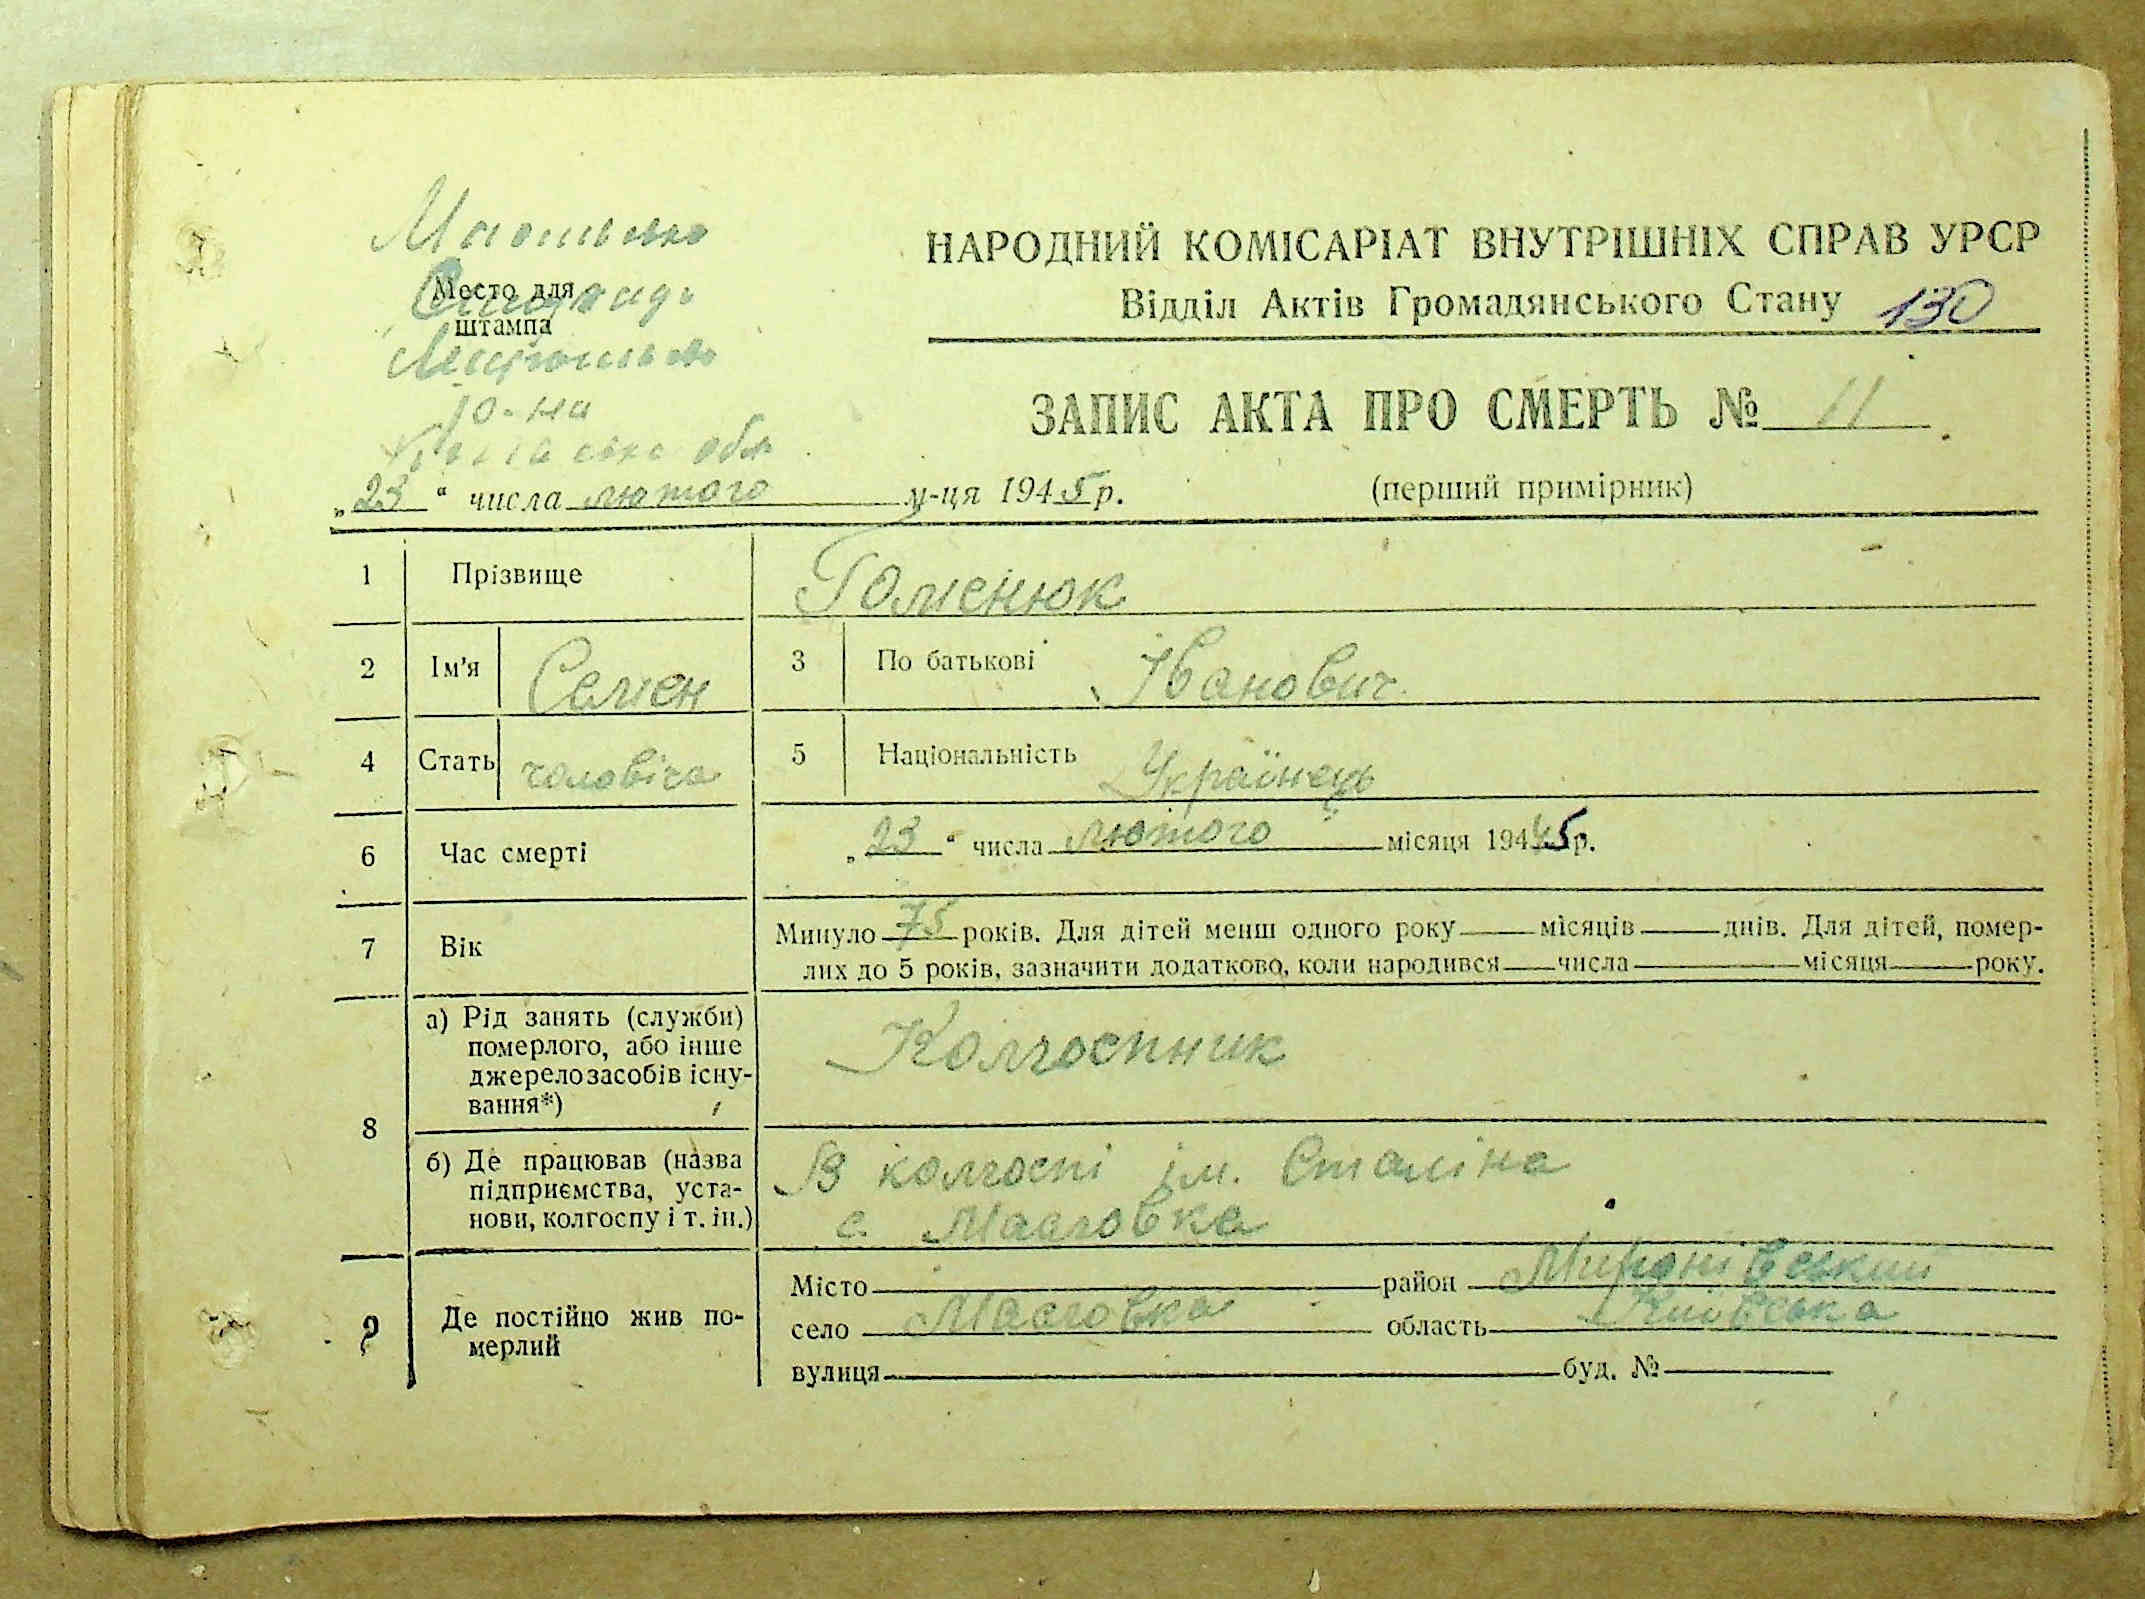 НАРОДНИЙ КОМІСАРІАТ ВНУТРІШНІХ СПРАВ УРСР
Відділ Актів Громадянського Стану 130
Место для
штампа
р-на
обл.
ЗАПИС АКТА ПРО СМЕРТЬ № 11
„23“ числа лютого м-ця 1945 р.
(перший примірник)
1 Прізвище Гоменюк
2 Ім'я Семен 3 По батькові Іванович
4 Стать чоловіча 5 Національність Українець
6 Час смерті „23“ числа лютого місяця 1945 р.
7 Вік Минуло 75 років. Для дітей менш одного року місяців днів. Для дітей, помер-
лих до 5 років, зазначити додатково, коли народився числа місяця року.
8 а) Рід занять (служби)
померлого, або інше
джерело засобів існу-
вання*)
Колгоспник
б) Де працював (назва
підприємства, уста-
нови, колгоспу і т. ін.)
В колгоспі ім. Сталіна
с. Масловка
9 Де постійно жив по-
мерлий
Місто район Миронівський
село Масловка область Київська
вулиця буд. №